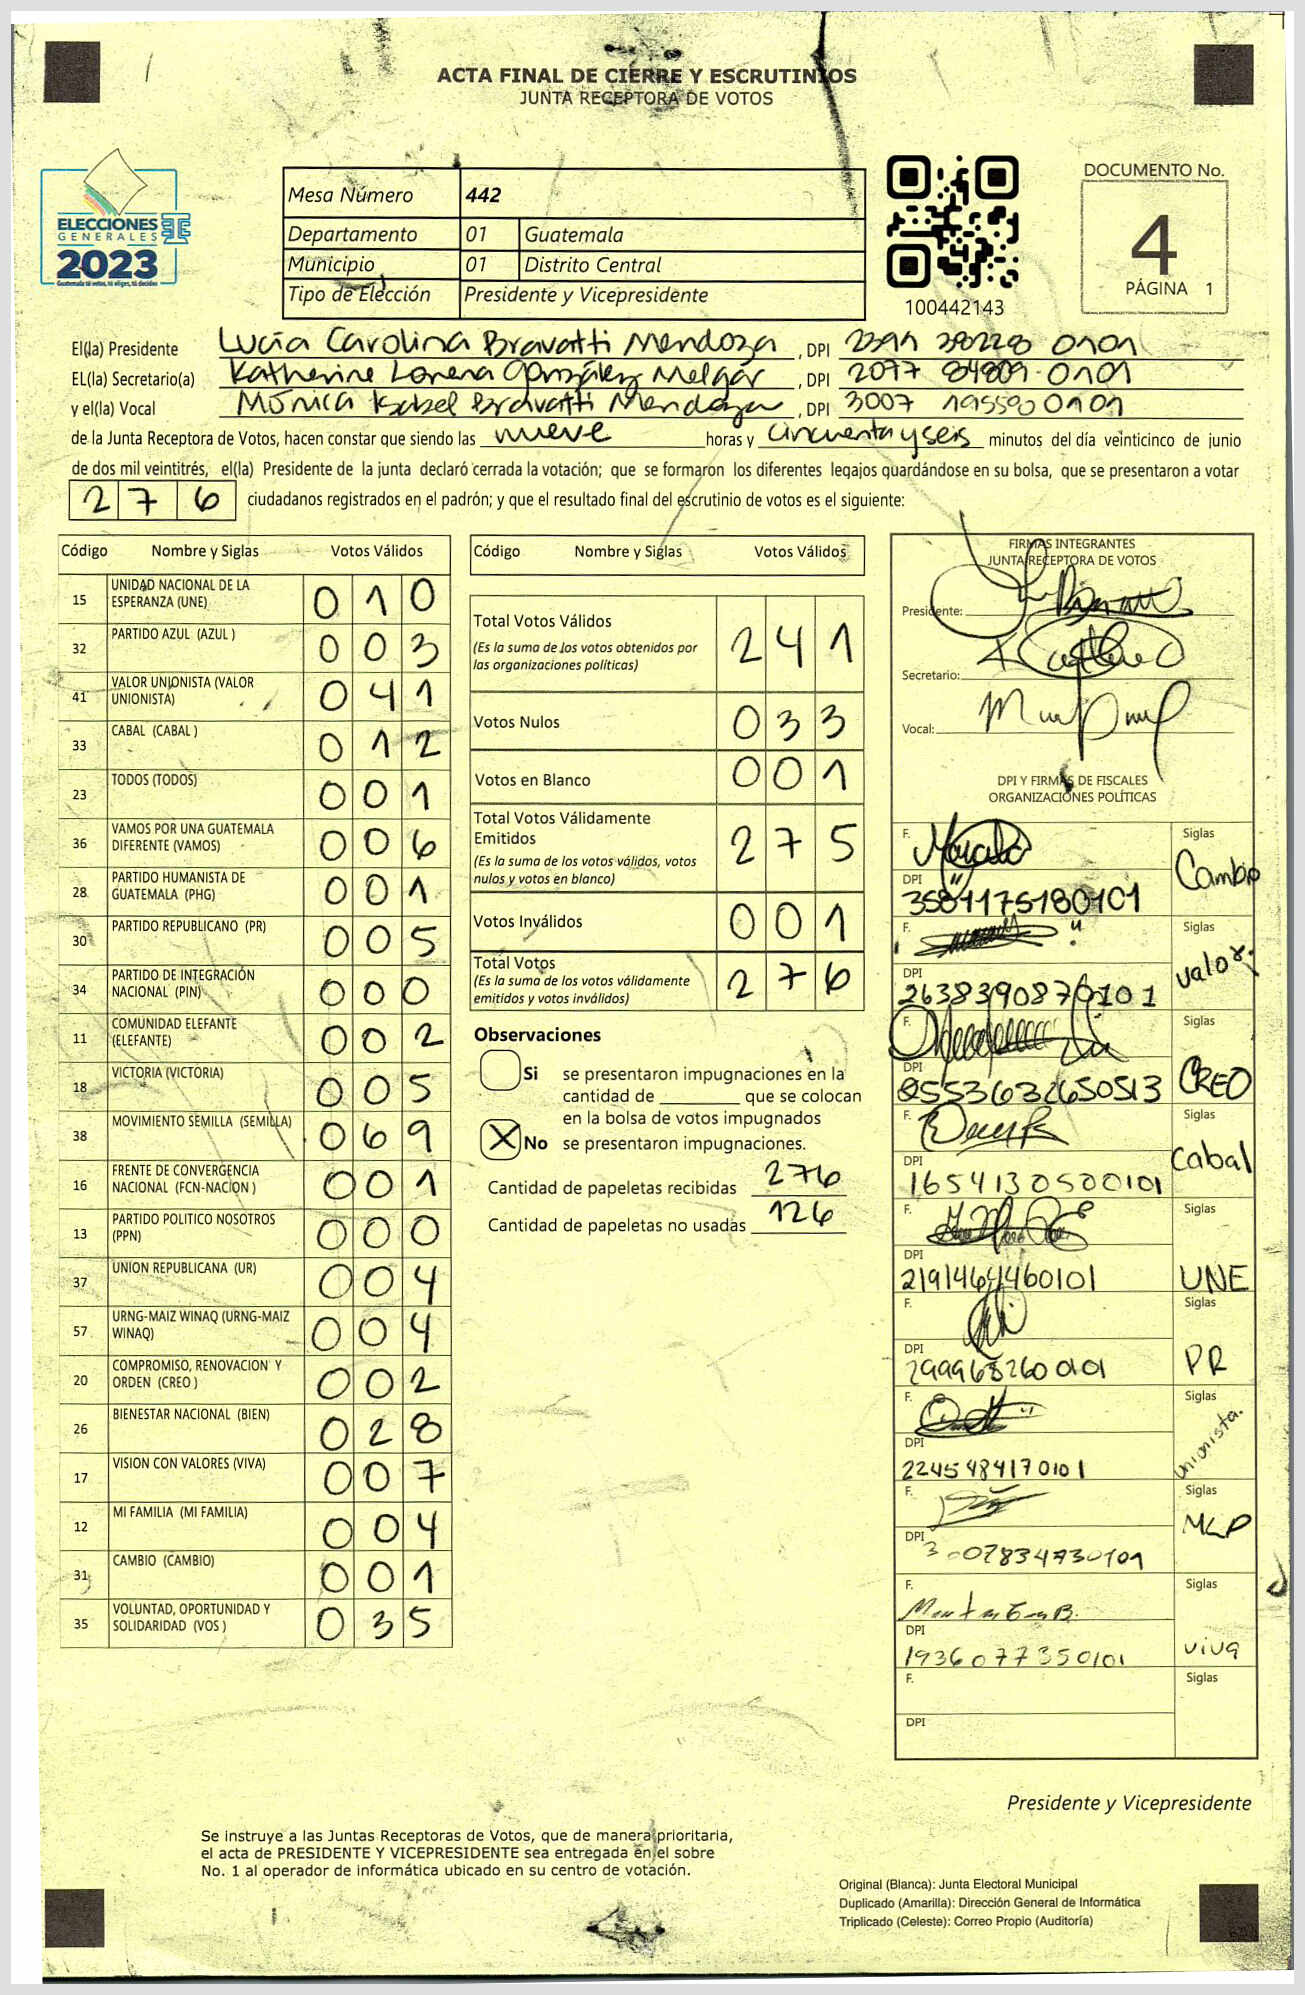 ACTA FINAL DE CIERRE Y ESCRUTINIOS
JUNTA RECEPTORA DE VOTOS
ELECCIONES
GENERALES
2023
Guatemala tú votas, tú eliges, tú decides
Mesa Número 442
Departamento 01 Guatemala
Municipio 01 Distrito Central
Tipo de Elección Presidente y Vicepresidente
100442143
DOCUMENTO No.
4
PÁGINA 1
El(la) Presidente Lucía Carolina Bravatti Mendoza, DPI 0101
EL(la) Secretario(a) Katherine Lorena González Melgar, DPI 2077 84809 0101
y el(la) Vocal Mónica Isabel Bravatti Mendoza, DPI 3007 195590 0101
de la Junta Receptora de Votos, hacen constar que siendo las nueve horas y cincuenta y seis minutos del día veinticinco de junio
de dos mil veintitrés, el(la) Presidente de la junta declaró cerrada la votación; que se formaron los diferentes legajos guardándose en su bolsa, que se presentaron a votar
276 ciudadanos registrados en el padrón; y que el resultado final del escrutinio de votos es el siguiente:
Código Nombre y Siglas Votos Válidos
15 UNIDAD NACIONAL DE LA ESPERANZA (UNE) 010
32 PARTIDO AZUL (AZUL ) 003
41 VALOR UNIONISTA (VALOR UNIONISTA) 041
33 CABAL (CABAL ) 012
23 TODOS (TODOS) 001
36 VAMOS POR UNA GUATEMALA DIFERENTE (VAMOS) 006
28 PARTIDO HUMANISTA DE GUATEMALA (PHG) 001
30 PARTIDO REPUBLICANO (PR) 005
34 PARTIDO DE INTEGRACIÓN NACIONAL (PIN) 000
11 COMUNIDAD ELEFANTE (ELEFANTE) 002
18 VICTORIA (VICTORIA) 005
38 MOVIMIENTO SEMILLA (SEMILLA) 069
16 FRENTE DE CONVERGENCIA NACIONAL (FCN-NACION ) 001
13 PARTIDO POLITICO NOSOTROS (PPN) 000
37 UNION REPUBLICANA (UR) 004
57 URNG-MAIZ WINAQ (URNG-MAIZ WINAQ) 004
20 COMPROMISO, RENOVACION Y ORDEN (CREO ) 002
26 BIENESTAR NACIONAL (BIEN) 028
17 VISION CON VALORES (VIVA) 007
12 MI FAMILIA (MI FAMILIA) 004
31 CAMBIO (CAMBIO) 001
35 VOLUNTAD, OPORTUNIDAD Y SOLIDARIDAD (VOS ) 035
Código Nombre y Siglas Votos Válidos
Total Votos Válidos 241
(Es la suma de los votos obtenidos por
las organizaciones políticas)
Votos Nulos 033
Votos en Blanco 001
Total Votos Válidamente
Emitidos 275
(Es la suma de los votos válidos, votos
nulos y votos en blanco)
Votos Inválidos 001
Total Votos 276
(Es la suma de los votos válidamente
emitidos y votos inválidos)
Observaciones
Si se presentaron impugnaciones en la
cantidad de ________ que se colocan
en la bolsa de votos impugnados
X No se presentaron impugnaciones.
Cantidad de papeletas recibidas 276
Cantidad de papeletas no usadas 126
FIRMAS INTEGRANTES
JUNTA RECEPTORA DE VOTOS
Presidente:
Secretario:
Vocal:
DPI Y FIRMAS DE FISCALES
ORGANIZACIONES POLÍTICAS
F. Siglas Cambio
DPI 3581175180101
F. Siglas valor
DPI 2638390870101
F. Siglas CREO
DPI 2553632650513
F. Siglas Cabal
DPI 1654130500101
F. Siglas UNE
DPI 2191464460101
F. Siglas PR
DPI 2999682600101
F. Siglas unionista.
DPI 2245484170101
F. Siglas MLP
DPI 3007834730101
F. Siglas viva
DPI 1936077350101
F. Siglas
DPI
Presidente y Vicepresidente
Se instruye a las Juntas Receptoras de Votos, que de manera prioritaria,
el acta de PRESIDENTE Y VICEPRESIDENTE sea entregada en el sobre
No. 1 al operador de informática ubicado en su centro de votación.
Original (Blanca): Junta Electoral Municipal
Duplicado (Amarilla): Dirección General de Informática
Triplicado (Celeste): Correo Propio (Auditoría)